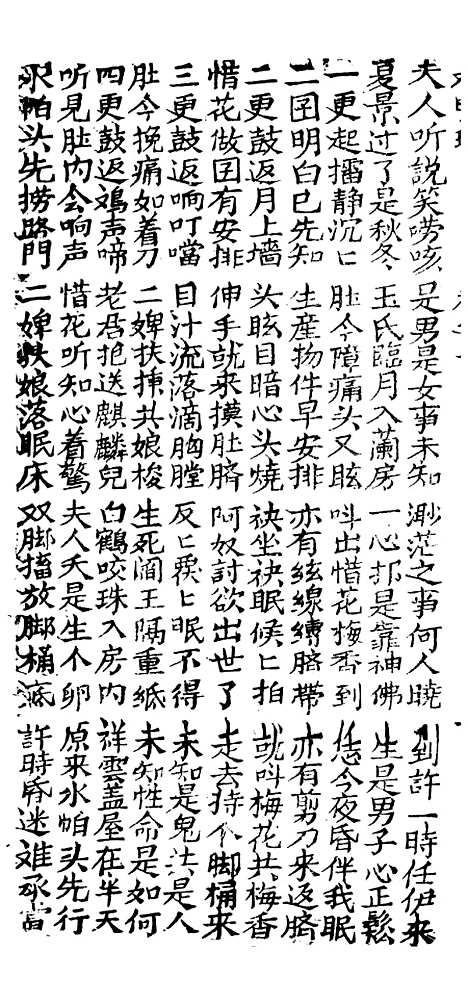 夫人听説笑嘮咳 是男是女事未知 渺茫之事何人曉 到許一時任伊來
夏景过了是秋冬 玉氏臨月入蘭房 一心扵是靠神佛 生是男子心正鬆
一更起擂静沉匕 肚今障痛头又眩 呌出惜花梅香到 恁今夜昏伴我眠
二囝明白已先知 生産物件早安排 亦有絃線縛臍帶 亦有剪刀来返臍
二更鼓返月上墻 头眩目暗心头燒 袂坐袂眠候匕拍 就叫梅花共梅香
惜花做囝有安排 伸手就来摸肚臍 阿奴討欲出世了 走去持个脚桶来
三更鼓返响叮噹 目汁流落滴胸膛 反匕覆匕眠不得 未知是鬼共是人
肚今挽痛如着刀 二婢扶捒共娘梭 生死閻王隔重紙 未知性命是如何
四更鼓返鴉声啼 老君抱送麒麟兒 白鶴咬珠入房内 祥雲蓋屋在半天
听見肚内会响声 惜花听知心着驚 夫人夭是生个卵 原来水帕头先行
水帕头先捞路門 二婢扶娘落眠床 双脚擋放脚桶底 許時昏迷难承當